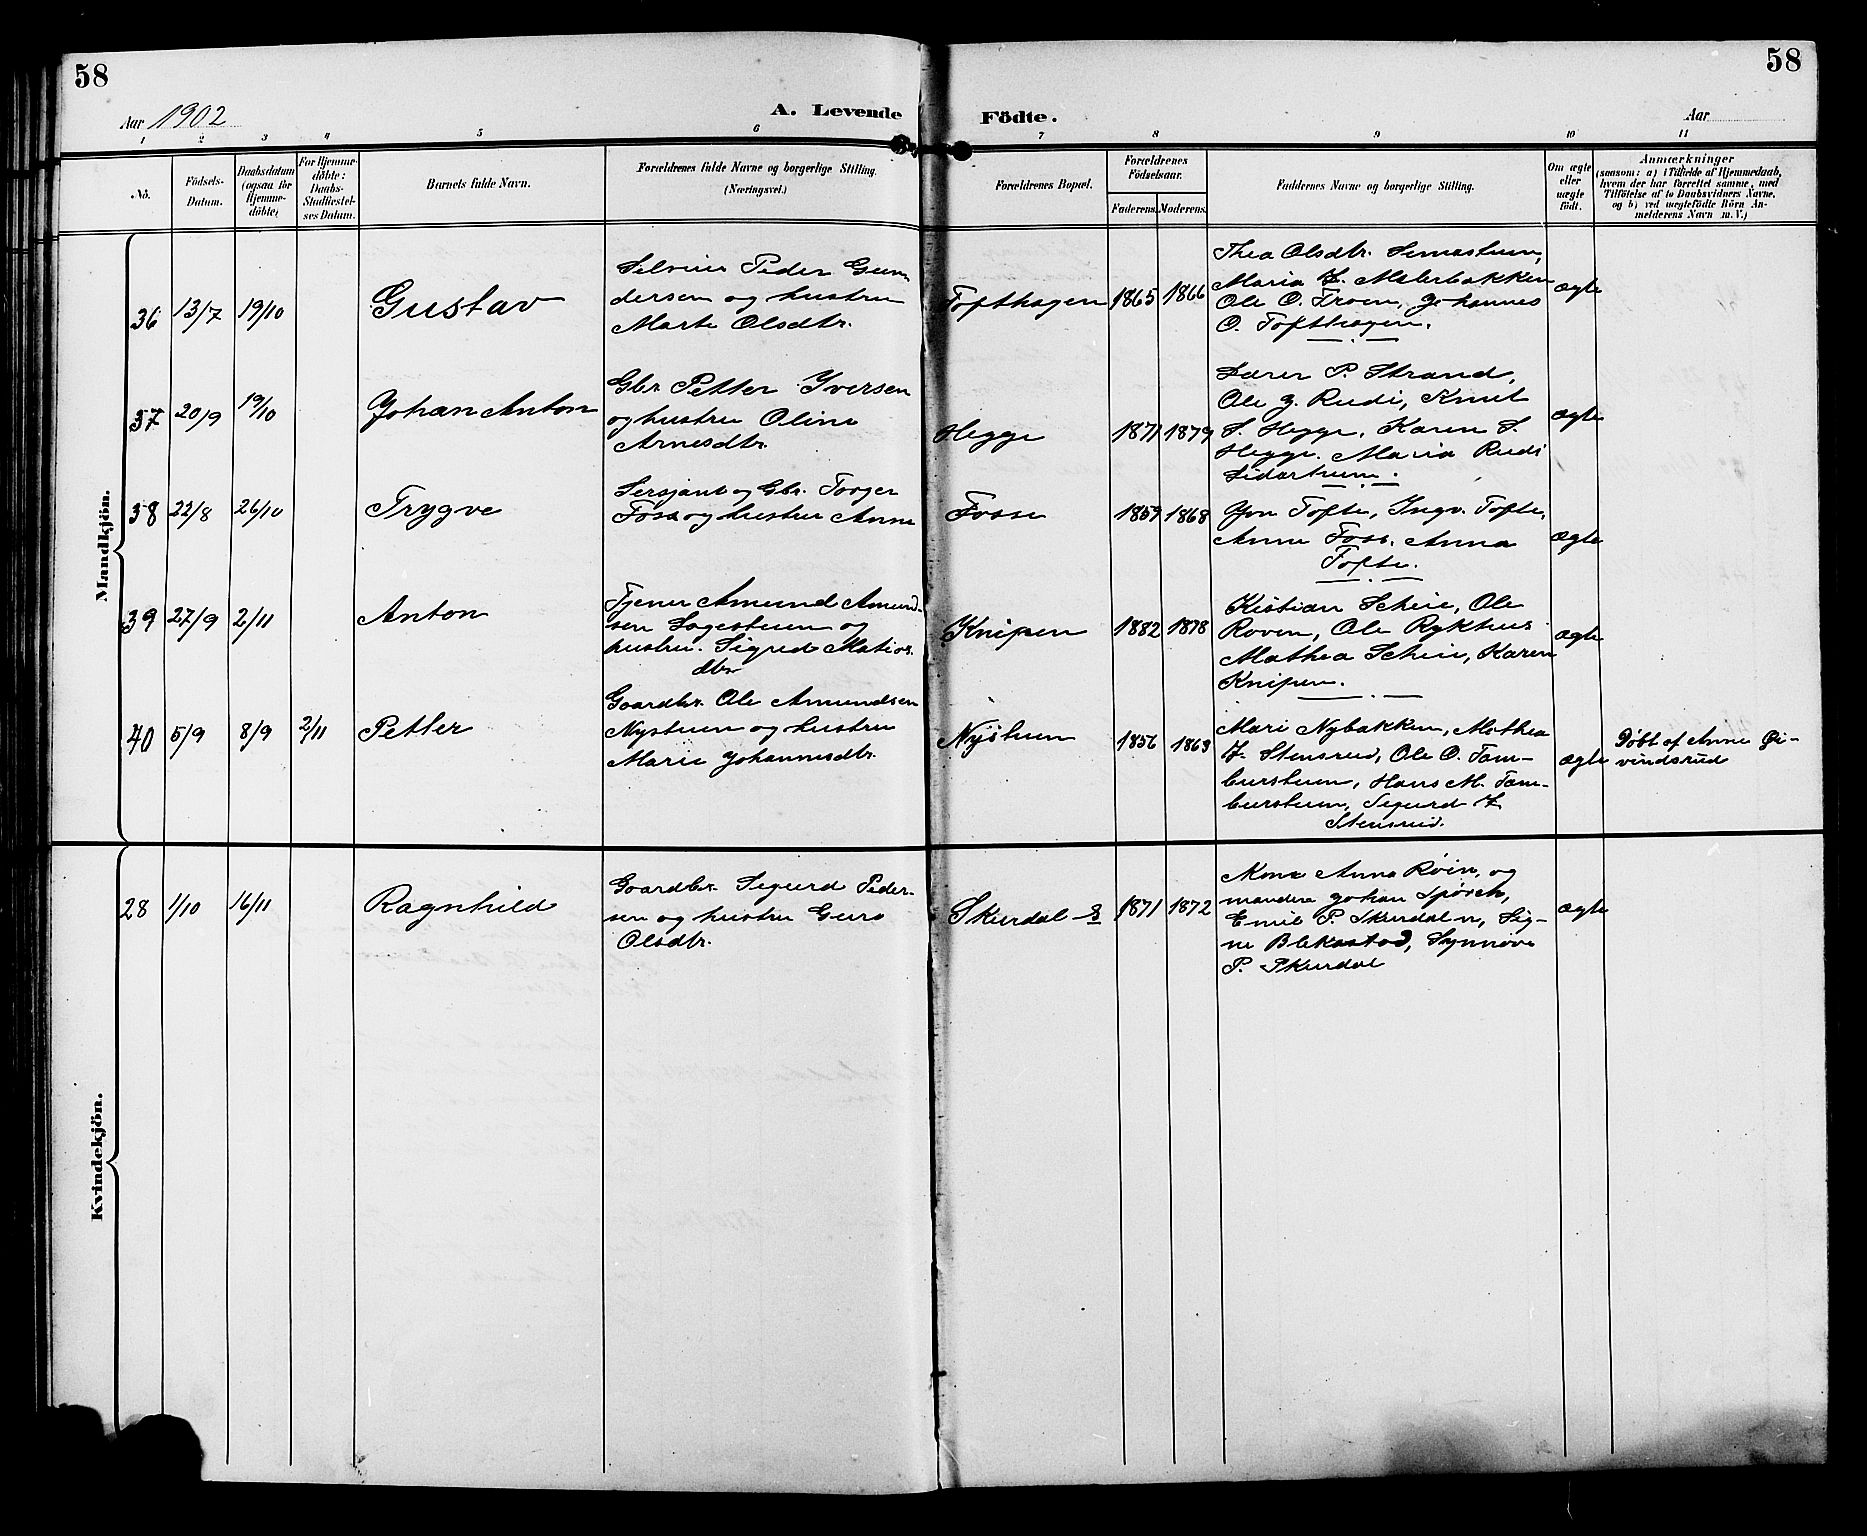 58
58
Aar 1902
A. Levende
Födte.
Aar
1 2 3 4 5 6 7 8 9 10 11
No.
Födsels-
Datum.
Daabsdatum
(ogsaa for
Hjemme-
döbte;
For Hjemme-
döbte:
Daabs-
Stadfæstel-
ses Datum.
Barnets fulde Navn.
Forældrenes fulde Navne og borgerlige Stilling.
(Næringsvei.)
Forældrenes Bopæl.
Forældrenes
Födselsaar.
Faderens.
Moderens.
Faddernes Navne og borgerlige Stilling.
Om ægte
eller
uægte
födt.
Anmærkninger
(saasom: a) i Tilfælde af Hjemmedaab,
hvem der har forrettet samme, med
Tilföielse af to Daabsvidners Navne,
og b) ved uægtefödte Börn An-
melderens Navn m. V.)
Mandkjön.
36 13/7 19/10
Gustav
Selveier Peder Gun-
dersen og hustru
Marte Olsdtr.
Tofthagen
1865 1866
Thea Olsdtr.
Maria
Ole O. Froen, Johannes
O. Tofthagen.
ægte
37 20/9 19/10
Johan Anton
Gbr. Petter Iversen
og hustru Oline
Arnesdtr.
Hegge
1871 1879
Lærer P. Strand,
Ole J. Rudi, Knut
S. Hegge, Karen S.
Hegge. Maria Rudi
ægte
38 22/8 26/10
Trygve
Sersjant og Gbr. Torger
Foss og hustru Anne
Fosse
1859 1868
Jon Tofte, Ingv. Tofte,
Anne Foss. Anna
Tofte.
ægte
39 27/9 2/11
Anton
Tjener Amund Amund-
sen Sagestuen og
hustru. Sigrid Matias-
dtr
Knipen
1882 1878
Kistian Scheie, Ole
Roven, Ole Rykhus
Mathea Scheie, Karen
Knipen.
ægte
40 5/9 8/9 2/11
Petter
Gaardbr. Ole Amundsen
Nystuen og hustru
Marie Johannesdtr.
Nystuen
1856 1863
Mari Nybakken, Mathea
Stensrud, Ole O. Tam-
burstuen, Hans M. Tam-
burstuen, Sigurd
Stensrud.
ægte
Døbt af Anne Øi-
vindsrud
Kvindekjön.
28 1/10 16/11
Ragnhild
Gaardbr. Sigurd Peder-
sen og hustru Guro
Olsdtr.
Skurdal
1871 1872
Kone Anna Röin, og
mandene Johan Spørck,
Emil P. Skurdal n, Sig-
ne Blekastad, Synnøve
P. Skurdal
ægte